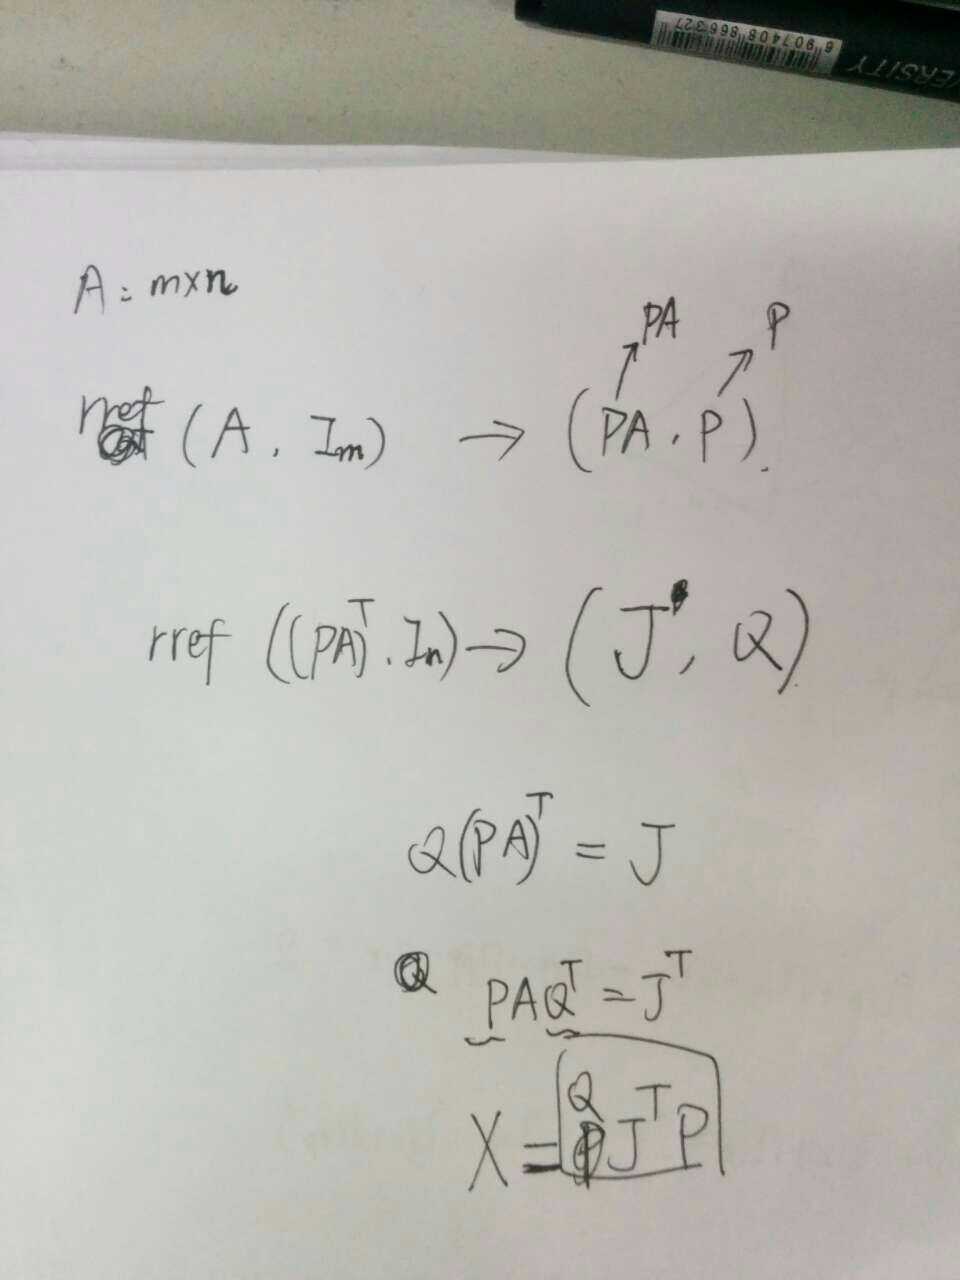 6 907408 866327
ERSITY
A: m×n
PA P
rref (A, Im) → (PA, P).
rref ((PA)ᵀ, In) → (J, Q)
Q(PA)ᵀ = J
Q PAQᵀ = Jᵀ
Q
X = JᵀP